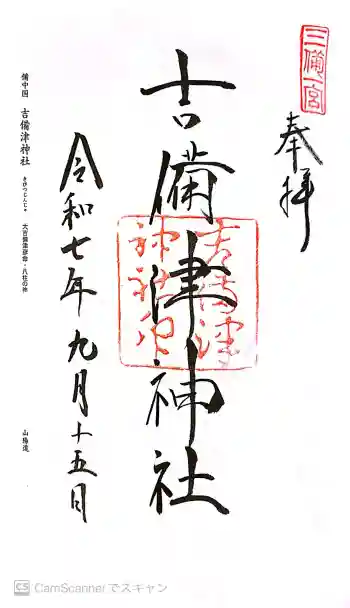 三備一宮
奉拝
吉備津神社
吉備津
神社印
令和七年九月十五日
備中国 吉備津神社 きびつじんじゃ 大吉備津彦命・八柱の神 山陽道
CS CamScanner でスキャン